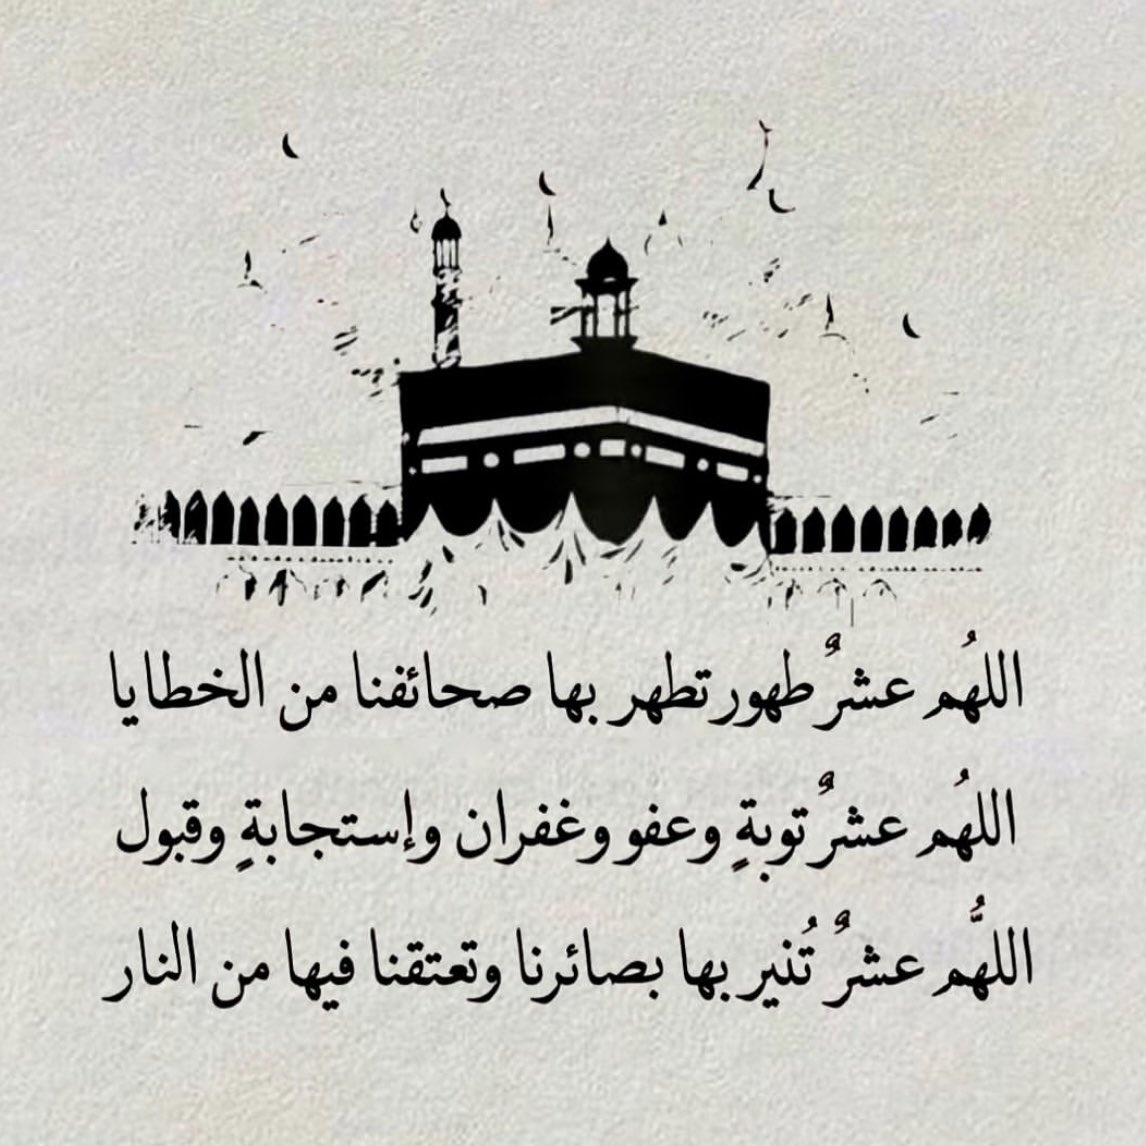 اللهُم عشرٌ طهور تطهر بها صحائفنا من الخطايا
اللهُم عشرٌ توبةٍ وعفو وغفران وإستجابةٍ وقبول
اللهُّم عشرٌ تُنير بها بصائرنا وتعتقنا فيها من النار